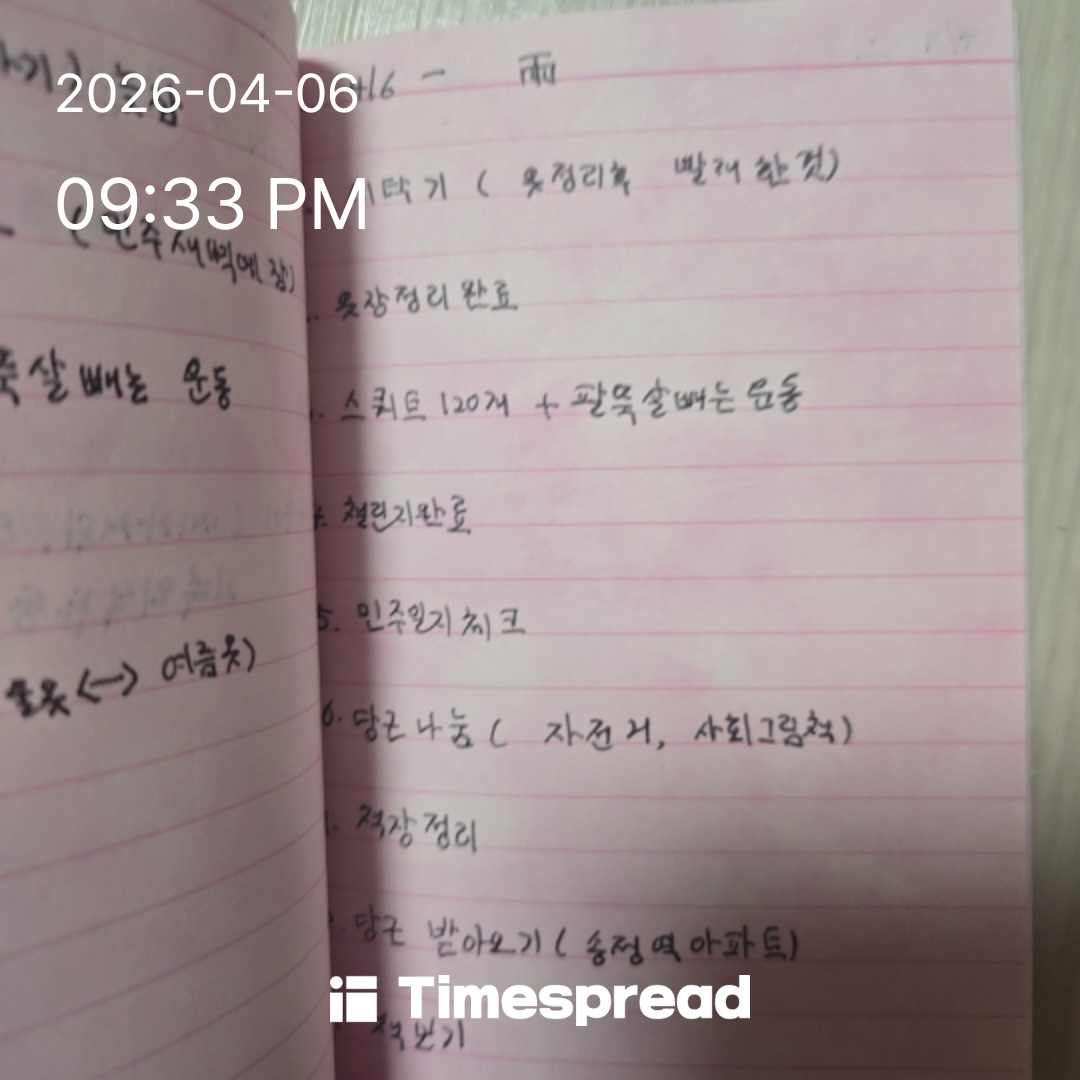 2026-04-06
09:33 PM
4/6 一 雨
세탁기 ( 옷정리후 빨래 한 것)
옷장정리 완료
스쿼트 120개 + 팔뚝살빼는 운동
4. 챌린지완료
5. 민주일지 체크
6. 당근 나눔 ( 자전거, 사회그림책)
책장정리
당근 받아오기 ( 송정역아파트)
책보기
(민주새벽에 잠)
뚝살빼는 운동
울옷 <-> 여름옷)
Timespread